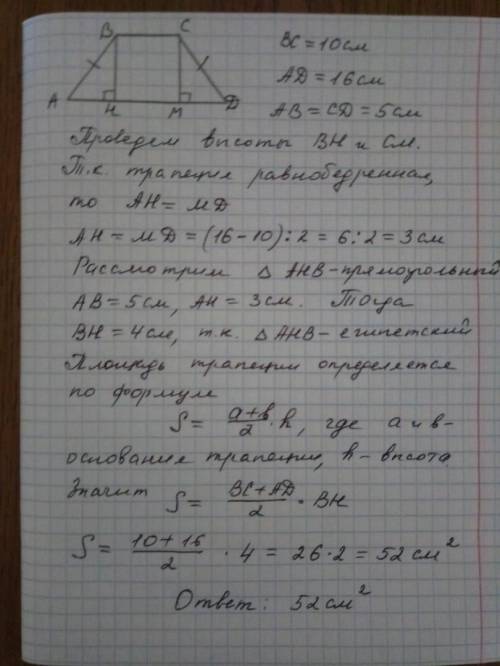 B C
A H M D
BC = 10 см
AD = 16 см
AB = CD = 5 см
Проведем высоты BH и CM.
Т.к. трапеция равнобедренная,
то AH = MD
AH = MD = (16 - 10) : 2 = 6 : 2 = 3 см
Рассмотрим △ AHB - прямоугольный
AB = 5 см, AH = 3 см. Тогда
BH = 4 см, т.к. △ AHB - египетский
Площадь трапеции определяется
по формуле
S = (a + b)/2 · h, где a и b -
основание трапеции, h - высота
Значит S = (BC + AD)/2 · BH
S = (10 + 16)/2 · 4 = 26 · 2 = 52 см²
Ответ: 52 см²